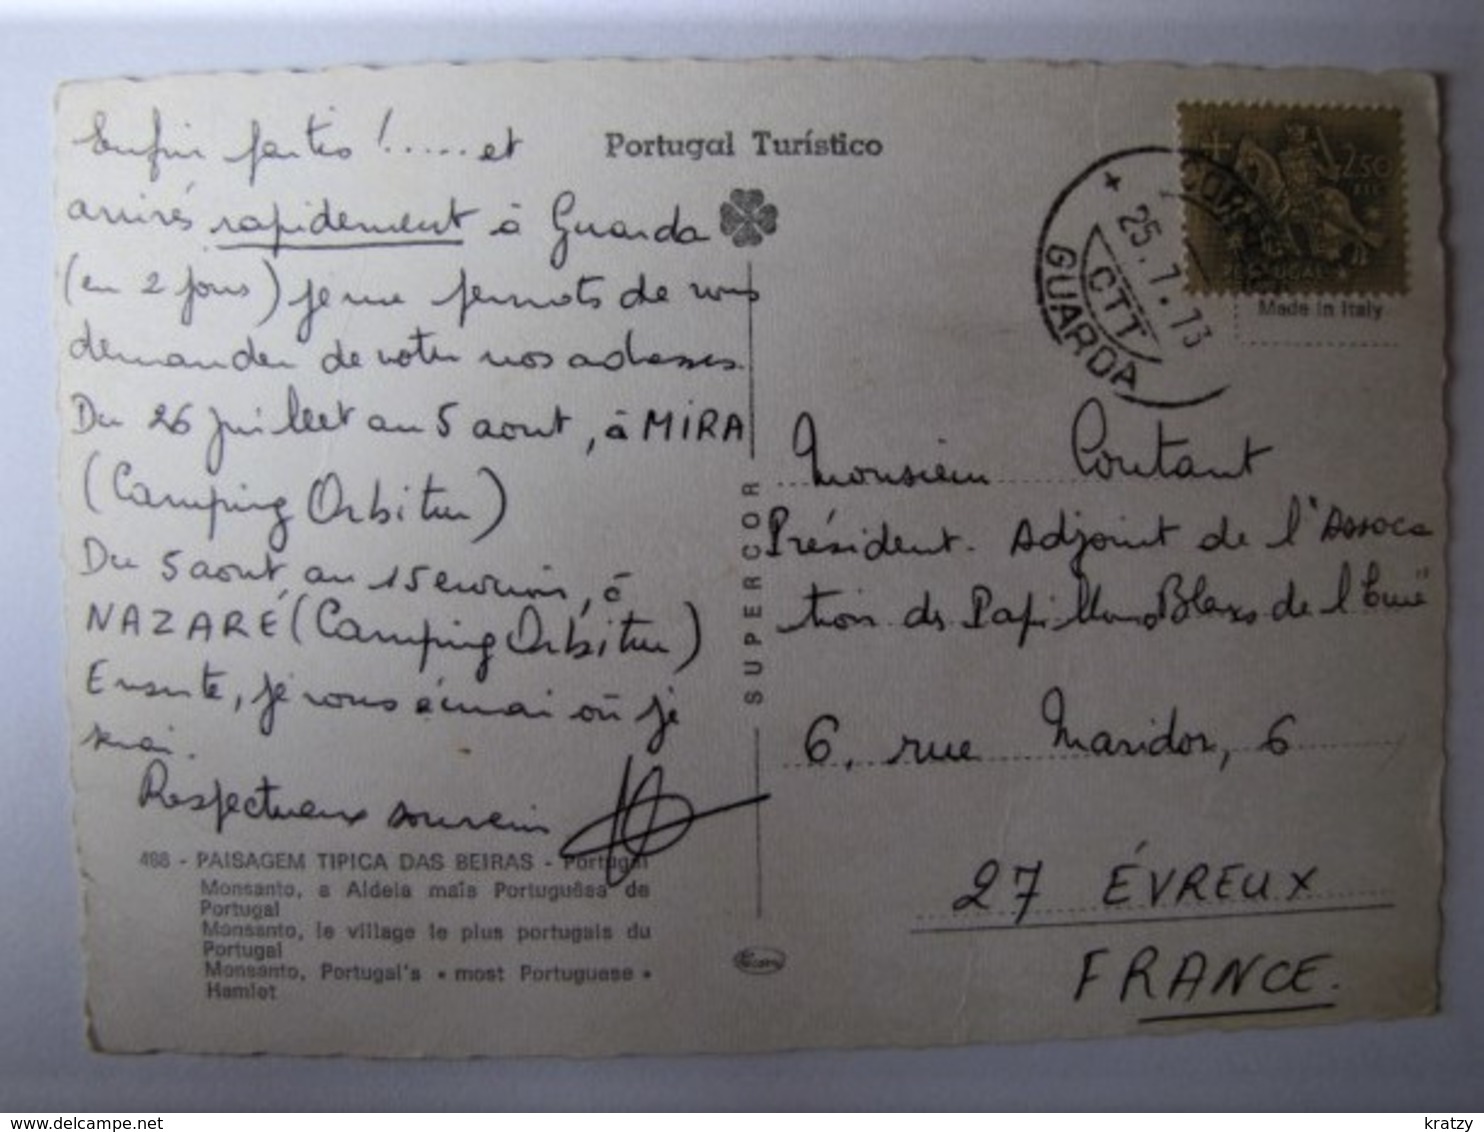 Portugal Turístico
Enfin partis !.....et
arrivés rapidement à Guarda
(en 2 jours) je me permets de vous
demander de noter nos adresses.
Du 26 juillet au 5 aout, à MIRA
(Camping Orbitur)
Du 5 aout au 15 environ, à
NAZARÉ (Camping Orbitur)
Ensuite, je vous écrirai où je
serai.
Respectueux souvenir
468 - PAISAGEM TIPICA DAS BEIRAS - Portugal
Monsanto, a Aldeia mais Portuguêsa de
Portugal
Monsanto, le village le plus portugais du
Portugal
Monsanto, Portugal's « most Portuguese »
Hamlet
SUPERCOR
CORREIOS
25.7.73
CTT
GUARDA
2$50
PORTUGAL
Made in Italy
Monsieur Coutant
Président. Adjoint de l'Associa
tion des Papillons Blancs de l'Eure
6, rue Maridor, 6
27 ÉVREUX
FRANCE.
delcampe.net
kratzy